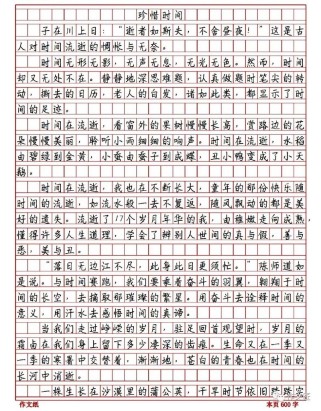 珍惜时间
子在川上曰："逝者如斯夫，不舍昼夜！"这是古
人对时间流逝的惆怅与无奈。
时间无形无影，无声无息，无光无色。然而，时间
却又无处不在。静静地深思难题，认真做题时笔尖的转
动，撕去的日历，老人的白发，诸如此类，都显示了时
间的足迹。
时间在流逝，看窗外的果树慢慢长高，赏路边的花
朵慢慢美丽，聆听小雨细细的响声。时间在流逝，水稻
由碧绿到金黄，小蚕由蚕子到成蝶，丑小鸭变成了小天
鹅。
时间在流逝，我也在不断长大，童年的那份快乐随
时间的流逝，如流水般一去不复返，随风飘动的都是美
好的遗失。流逝了17个岁月年华的我，由雉嫩走向成熟，
懂得许多人生道理，学会了辨别人世间的真与假，善与
恶，美与丑。
"落日无边江不尽，此身此日更须忙。"陈师道如
是说。与时间赛跑，我们要乘着奋斗的羽翼，翱翔于时
间的长空，去摘取那璀璨的繁星。用奋斗去诠释时间的
意义，用汗水去感悟时间的真谛。
当我们走过峥嵘的岁月，驻足回首观望时，岁月的
霜卤在我们身上留下多少凄深的齿痕。生命又在一季又
一季的寒暑中交替着，渐渐地，苍白的青春也在时间的
长河中消逝。
一株生长在沙漠里的蒲公英，干旱时节依旧
作文纸
本页600字